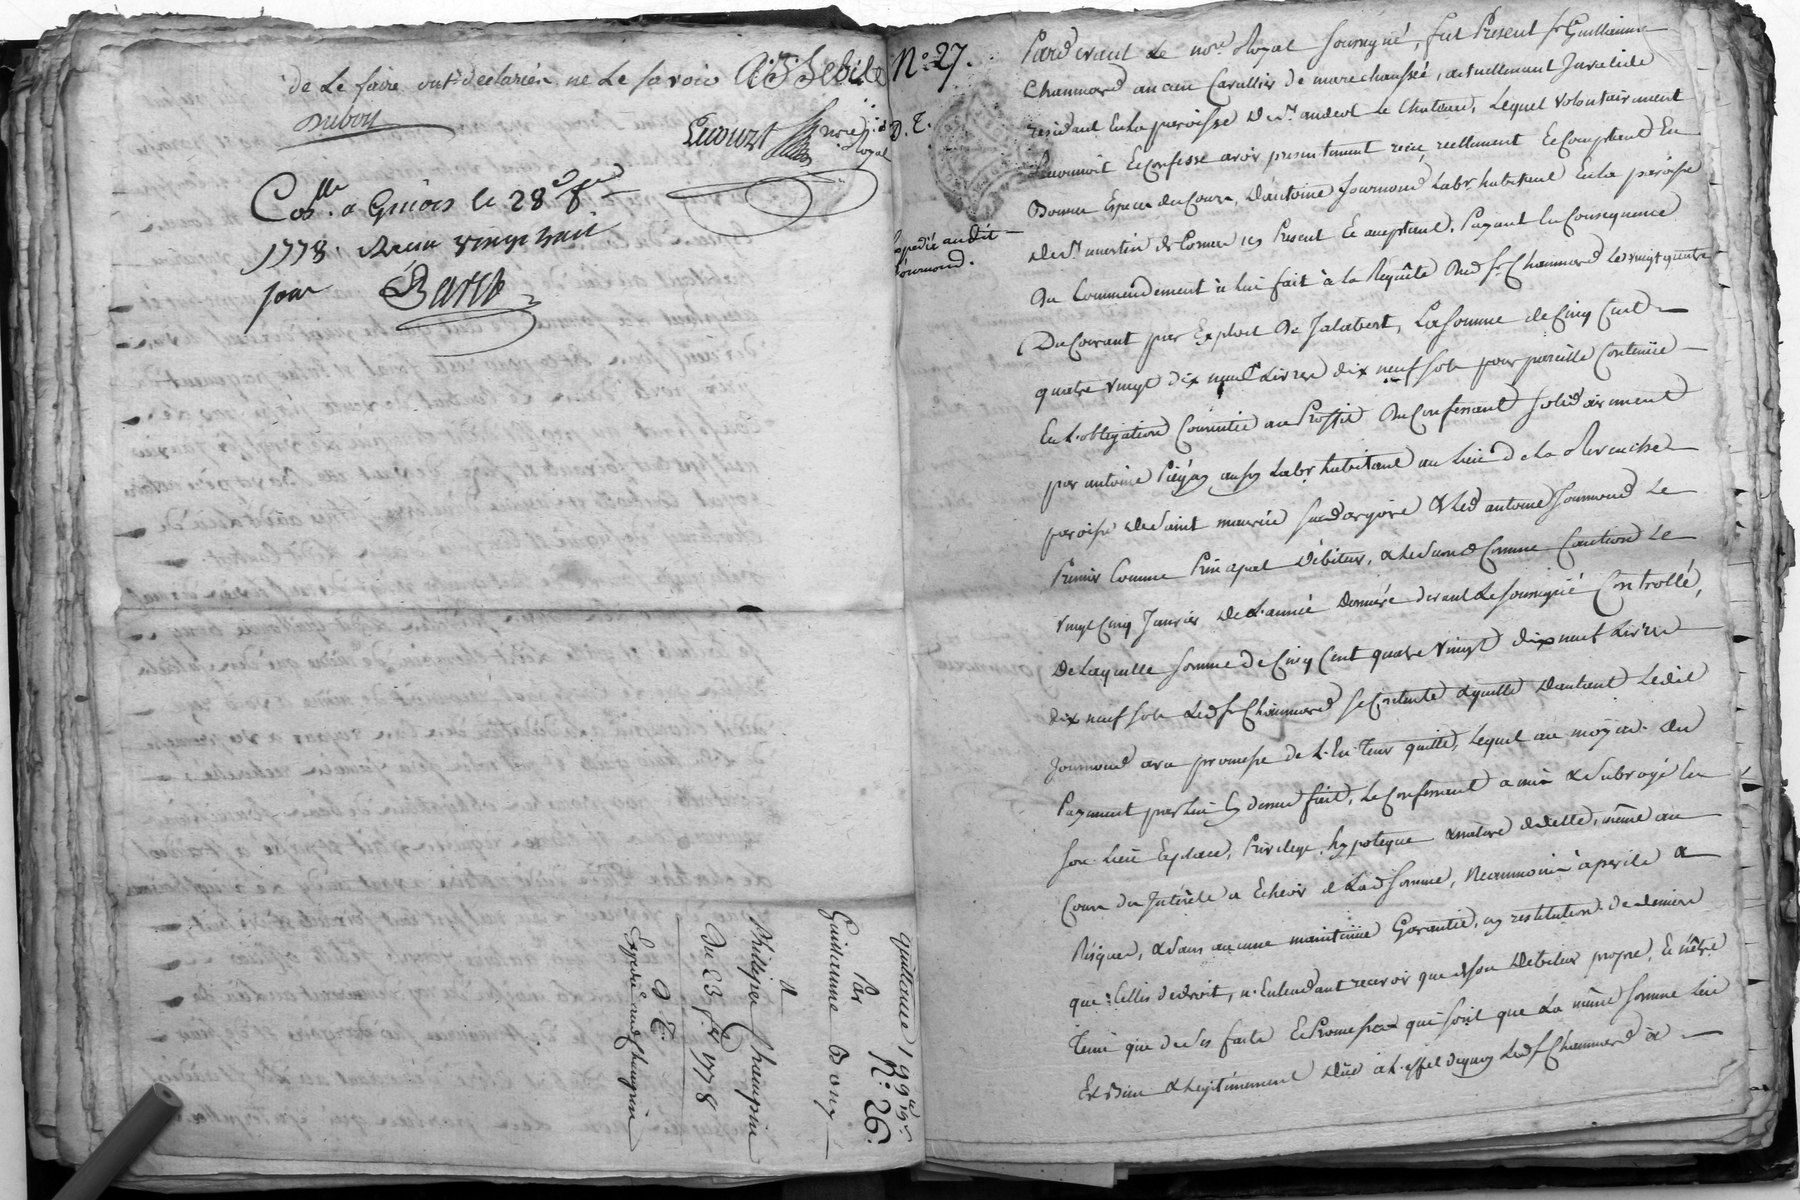 de Le faire ont declarés ne Le savoir A:B:Sebile
Dubois
Lecourt Nore
Royal
Collé a Genois le 28e fev
1778. Recu vingt huit
sous Barst
quittance 199ll 19s
N°: 26.
Par
Guillaume Bony
A
Philippe Champin
Du 23 fer 1778
a T.
Expedié aud Champin
N°. 27.
D. T.
Expedié au dit
Journoud.
Pardevant Le nore Royal soussigné, fut Present sr Guillaume
Chaumard ancien Cavallier de marechaussée, actuellement Invalide
residant En La paroisse De St andeol Le Chateau, Lequel volontairement
Reconnoit Et Confesse avoir presentement reçu reellement Et Comptant En
Bonnes Especes du Cours, D'antoine Journoud Labr habitant En La paroisse
De St martin de Cornas icy Present Et acceptant, Payant En Consequence
Du Commendement à Lui fait à la Requête Dud sr Chaumard Le vingt quatre
Du Courant par Exploit De Jalabert, La somme de Cinq Cent
quatre vingt dix neuf Livres dix neuf sols pour pareille Contenüe
En L'obligation Consentie au Proffit Du Confessant solidairement
par antoine Piégay aussy Labr habitant au Lieu de La
paroisse de saint maurice sur dargoire & Led antoine Journoud Le
Premier Comme Principal Débiteur, & Le Second Comme Caution Le
vingt Cinq Janvier De L'année Derniére devant Le soussigné Controllé,
De Laquelle somme de Cinq Cent quatre vingt dix neuf Livres
dix neuf sols Led sr Chaumard se Contente & quitte D'autant Ledit
Journoud avec promesse de L'En Tenir quitte, Lequel au moyen du
Payement par Lui Cy dessus fait, Le Confessant a mis & subrogé En
son Lieu Et place, Privilege, hypoteque & nature de dette, même au
Cours des Intérêts a Echeoir de Lad somme, Neanmoins à perils &
Risques, & sans aucune maintenüe Garantie, ny restitution de deniers
que Celles de droit, n'Entendant recevoir que de son Débiteur propre, Et n'être
Tenu que de ses faits Et Promesses qui sont que La même somme Lui
Est Bien & Legitimement Düe à L'effet dequoy Led sr Chaumard a